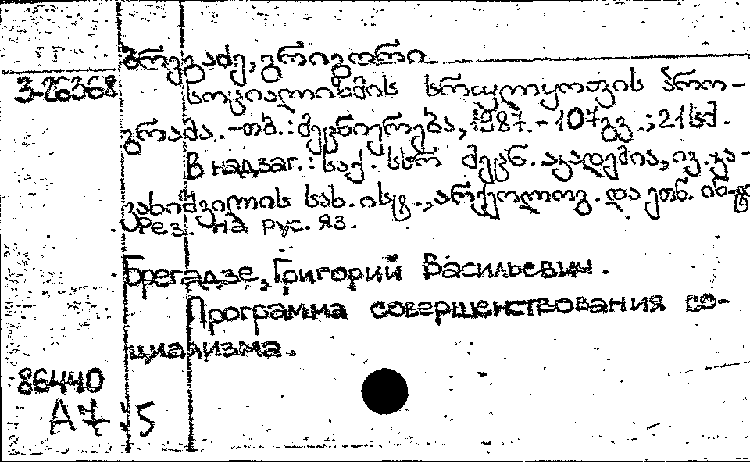 ბრეგაძე, გრიგორი
3-26368 სოციალიზმის სრულყოფის პრო-
გრამა. - თბ.: მეცნიერება, 1987. - 107გვ.; 21სმ.
В надзаг.: საქ. სსრ მეცნ. აკადემია, ივ. ჯა-
ვახიშვილის სახ. ისტ., არქეოლოგ. და ეთნ. ინ-ტი
Рез. на рус. яз.
Брегадзе, Григорий Васильевич.
Программа совершенствования со-
циализма.
86440
А7 5